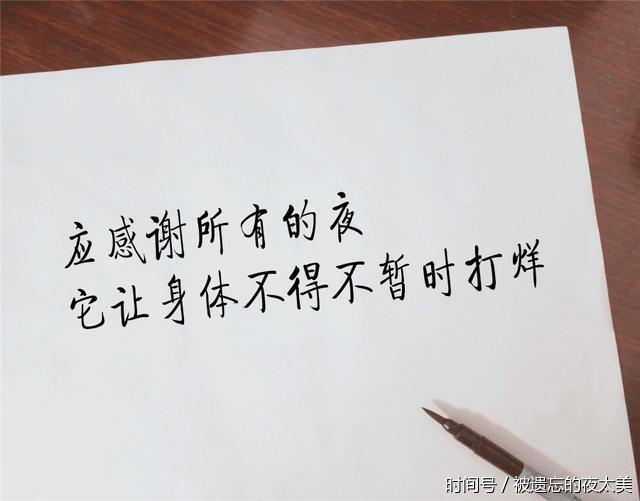 应感谢所有的夜
它让身体不得不暂时打烊
时间号／被遗忘的夜太美